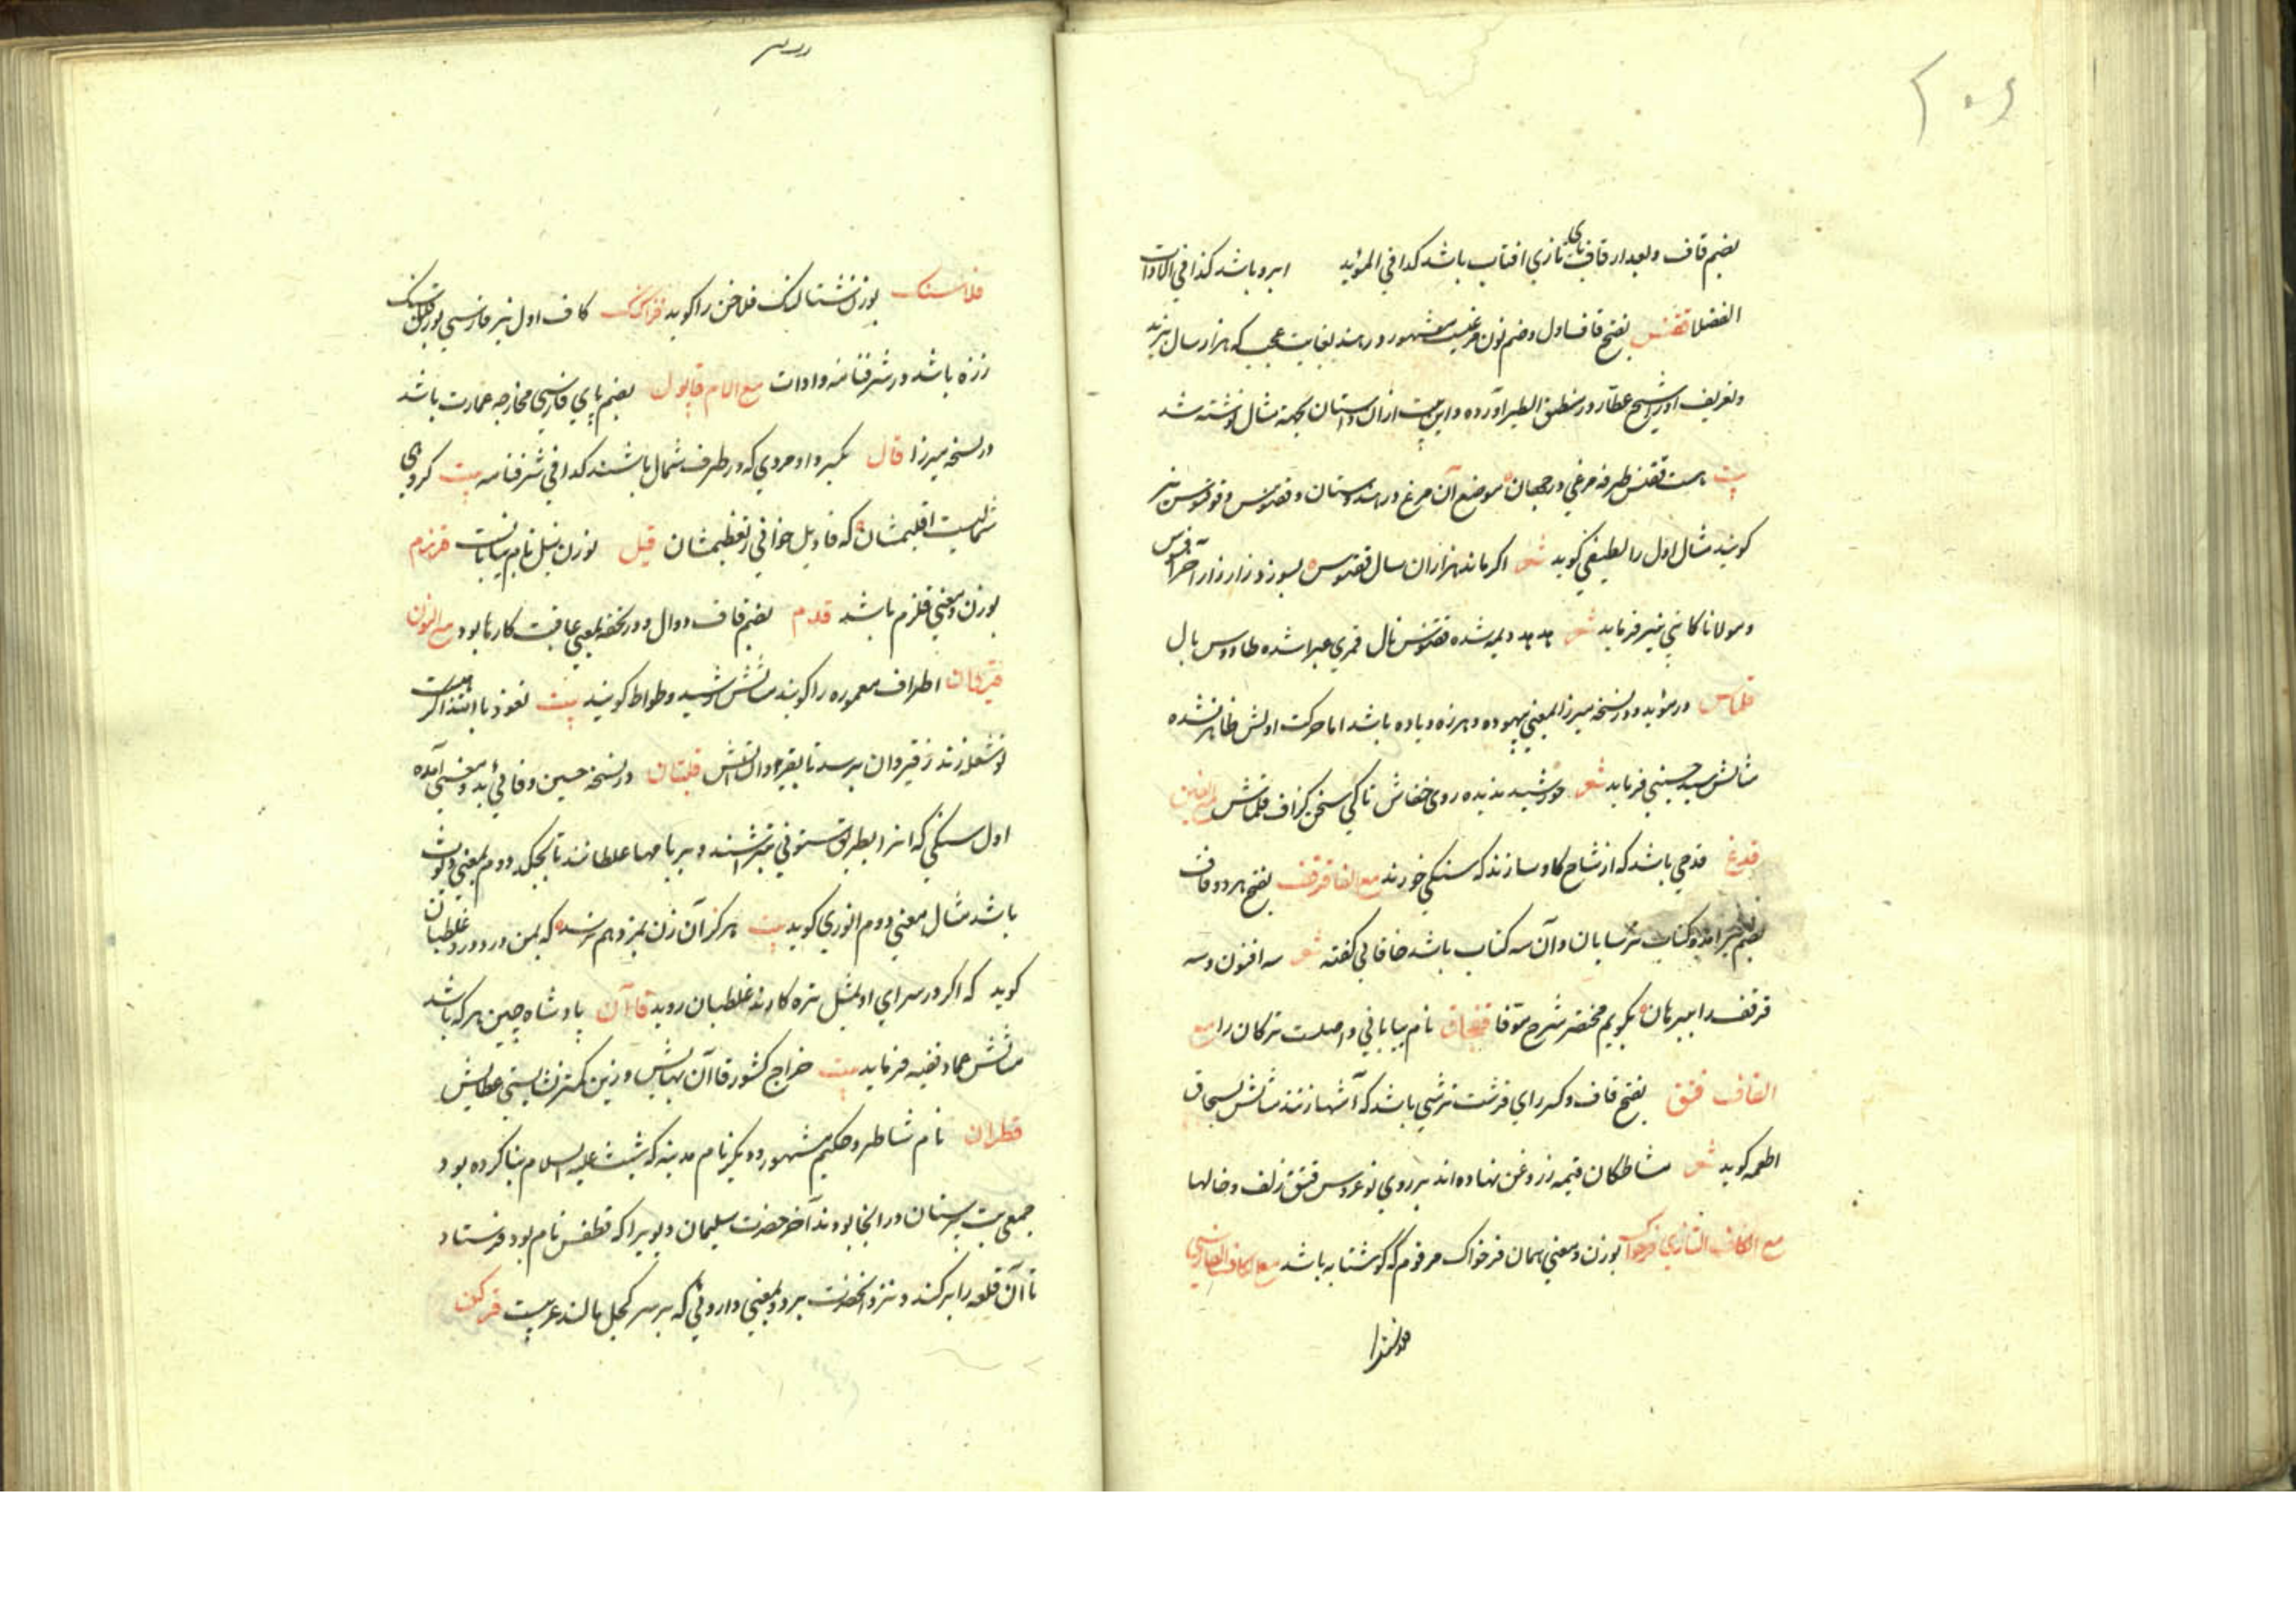 بضم قاف و بعد از قاف تازی افتاب باشد کذا فی المؤید ابرو باشد کذا فی الادات
الفضلا ققنس بفتح قاف اول و ضم نون مرغیست مشهور در هند بغایت عجب که هزار سال بزید
و تعریف او را شیخ عطار در منطق الطیر آورده و این بیت از آن داستان بجهة مثال نوشته شد
بیت هست ققنس طرفه مرغی در جهان موضع آن مرغ در هندوستان و ققنوس و قوقنوس نیز
کویند مثال اول را لطیفی کوید شعر اکر ماند هزاران سال ققنوس بسوزد زار زار آخر
و مولانا کاتبی نیز فرماید شعر هدهد دیمه شده ققنس نال قمری عبرا شده طاووس بال
قلماس در مؤید و در نسخه میرزا بمعنی بیهوده و هرزه و یاده باشد اما حرکت اولش ظاهر نشده
مثالش سید حسینی فرماید شعر خورشید ندیده روی خفاش تا کی سخن کزاف قلماش مع الغین
قدغ قدحی باشد که از شاخ کاو سازند که سنکی خورند مع الفا قرقف بفتح هر دو قاف
کتاب ترسایان و آن سه کتاب باشد خاقانی کفته شعر سه اقنون و سه
قرقف را ببرهان بکویم مختصر شرح موقا قفچاق نام بیابانی و اصلست ترکان را مع
القاف قنق بفتح قاف و کسر رای قرشت ترشی باشد که آشها زنند مثالش بسحاق
اطعمه کوید شعر مشاطکان قیمه ز روغن نهاده اند بر روی نو عروس قنق زلف و خالها
مع الکاف التازی قرخواک بوزن و معنی همان فرخواک مرقوم که کوشتابه باشد مع الکاف الفارسی
قلاسنک بوزن شتالنک فلاخن را کوید قزاکنک کاف اول نیز فارسی بوزن
رزه باشد در شرفنامه و ادات مع اللام قاپول بضم پای فارسی مخارجه عمارت باشد
در نسخه میرزا قال بکسر واو مردی که در طرف شمال باشند کذا فی شرفنامه بیت کروهی
شمالیست اقلیمشان که قاویل خوانی ز تعظیمشان قیل بوزن نیل نام بیابانست قرزم
بوزن و معنی قلزم باشد قدم بضم قاف و دال و در تحفه بمعنی عاقبت کارها بود مع النون
قیروان اطراف معموره را کویند مثالش رشید وطواط کویند بیت نعوذ بالله اکر
تو شعله زند ز قیروان برسد تا بقیروان آتش قلبتان در نسخه حسین وفائی بدو معنی آمده
اول سنکی که انرا بطریق ستونی بتراشند و بر بامها غلطانند تا بچکد دوم بمعنی دیوث
باشد مثال معنی دوم انوری کوید بیت هرکز آن زن بمزد هم نرسد که بمن در دورود غلطبان
کوید که اکر در سرای او بمثل تره کارند غلطبان روید قاآن پادشاه چین هر که باشد
مثالش عماد فقیه فرماید بیت خراج کشور قاآن بهایش وزین کمتر نشایستی عطایش
قطران نام شاطر و حکیم مشهور و دیکر نام مدینه که شیث علیه السلام بنا کرده بود
جمعی بت پرستان در انجا بودند آخر حضرت سلیمان دیویرا که قطفس نام بود فرستاد
تا آن قلعه را بر کند و نزد انحضرت برد و بمعنی داروئی که بر سر کچل مالند عربیست قرکن